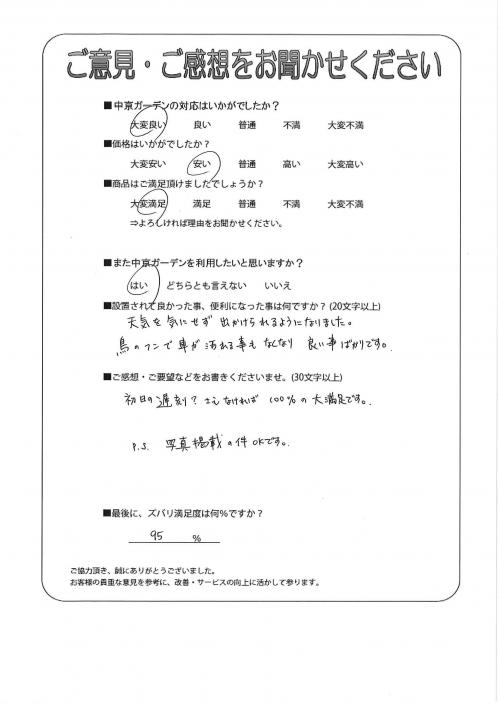 ご意見・ご感想をお聞かせください
■中京ガーデンの対応はいかがでしたか？
大変良い 良い 普通 不満 大変不満
■価格はいかがでしたか？
大変安い 安い 普通 高い 大変高い
■商品はご満足頂けましたでしょうか？
大変満足 満足 普通 不満 大変不満
⇒よろしければ理由をお聞かせください。
■また中京ガーデンを利用したいと思いますか？
はい どちらとも言えない いいえ
■設置されて良かった事、便利になった事は何ですか？(20文字以上)
天気を気にせず 出かけられるようになりました。
鳥のフンで車が汚れる事もなくなり 良い事ばかりです。
■ご感想・ご要望などをお書きくださいませ。(30文字以上)
初日の遅刻？さえなければ 100％の大満足です。
P.S. 写真掲載の件OKです。
■最後に、ズバリ満足度は何％ですか？
95 ％
ご協力頂き、誠にありがとうございました。
お客様の貴重な意見を参考に、改善・サービスの向上に活かして参ります。